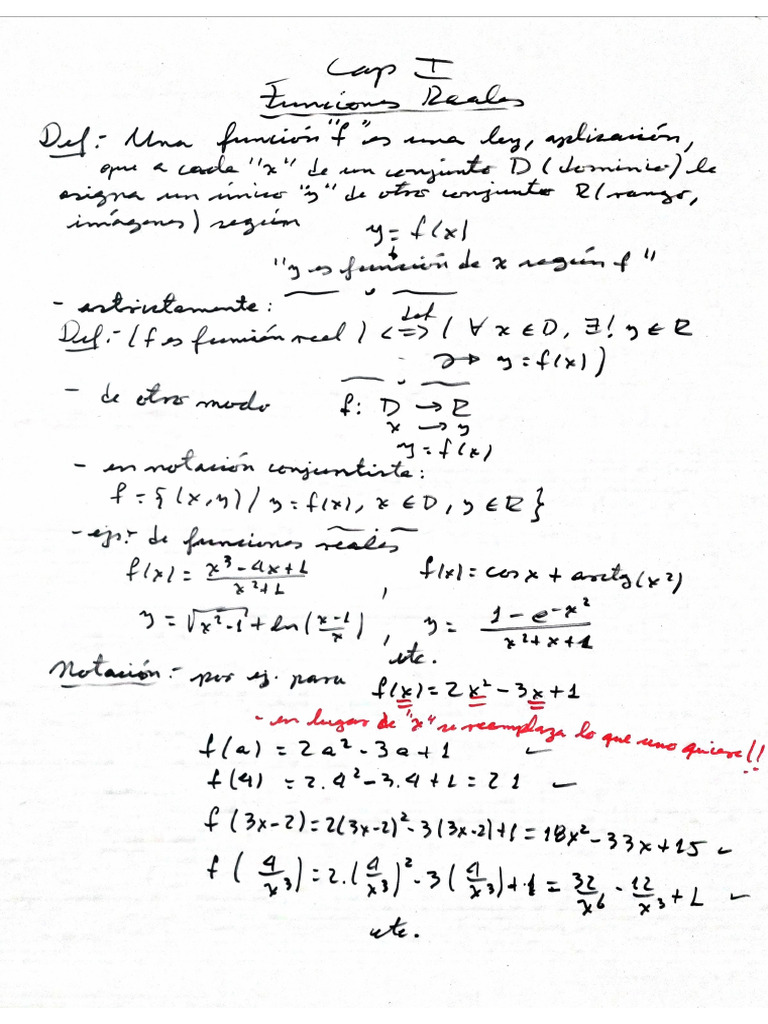 Cap I
Funciones Reales
Def:- Una función "f" es una ley, aplicación,
que a cada "x" de un conjunto D (dominio) le
asigna un único "y" de otro conjunto R (rango,
imágenes) según y = f(x)
"y es función de x según f"
- estrictamente:
Def:- (f es función real) <=> def ( ∀ x ∈ D, ∃! y ∈ R
→ y = f(x) )
- de otro modo f: D → R
x → y
y = f(x)
- en notación conjuntista:
f = { (x, y) / y = f(x), x ∈ D, y ∈ R }
- ejs:- de funciones reales
f(x) = (x³ - 4x + 1)/(x² + 1) , f(x) = cos x + arctg(x²)
y = √(x² - 1) + ln((x-1)/x) , y = (1 - e^(-x²))/(x² + x + 1)
etc.
Notación:- por ej. para f(x) = 2x² - 3x + 1
- en lugar de "x" se reemplaza lo que uno quiere!!
f(a) = 2a² - 3a + 1 ✓
f(4) = 2.4² - 3.4 + 1 = 21 ✓
f(3x-2) = 2(3x-2)² - 3(3x-2) + 1 = 18x² - 33x + 15 ✓
f(4/x³) = 2.(4/x³)² - 3(4/x³) + 1 = 32/x⁶ - 12/x³ + 1 ✓
etc.